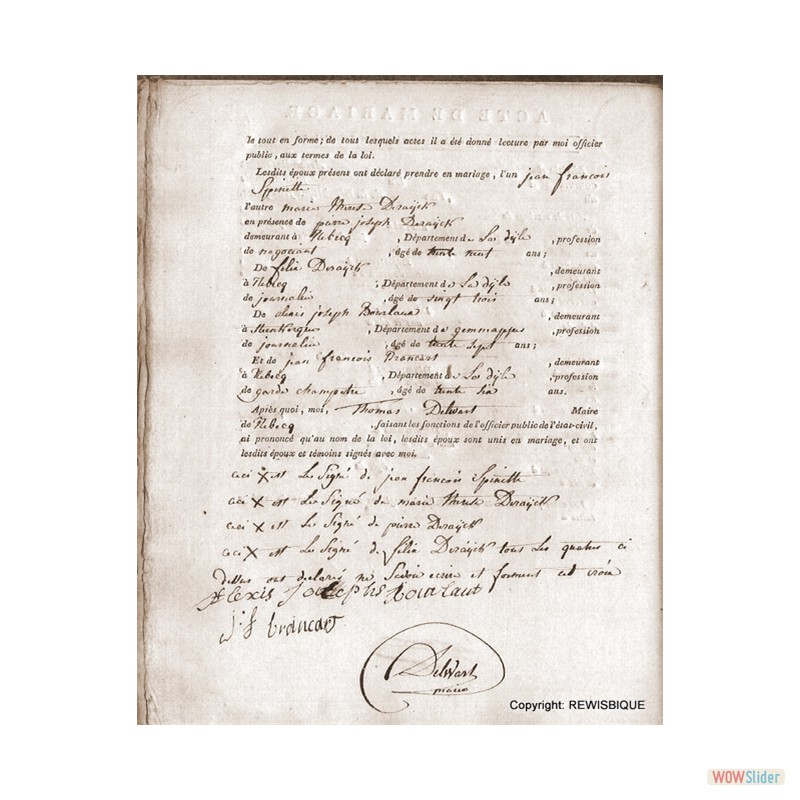 ACTE DE MARIAGE
le tout en forme; de tous lesquels actes il a été donné lecture par moi officier
public, aux termes de la loi.
Lesdits époux présens ont déclaré prendre en mariage, l'un jean françois
Spinette
l'autre marie Therese Deraijck
en présence de pierre joseph Deraijck
demeurant à Rebecq , Département de La dijle , profession
de negociant , âgé de trente neuf ans;
De felix Deraijck , demeurant
à Rebecq , Département de La dijle , profession
de journalier , âgé de vingt trois ans;
De alexis joseph Bourlaux , demeurant
à Steenkerque , Département de gemmappes , profession
de journalier , âgé de trente sept ans;
Et de jean françois Brancart , demeurant
à Rebecq , Département de La dijle , profession
de garde champetre , âgé de trente six ans.
Après quoi, moi, Thomas Delwart Maire
de Rebecq , faisant les fonctions de l'officier public de l'état-civil,
ai prononcé qu'au nom de la loi, lesdits époux sont unis en mariage, et ont
lesdits époux et témoins signés avec moi.
ceci X est Le Signé de jean françois Spinette
ceci X est Le Signé de marie Therese Deraijck
ceci X est Le Signé de pierre Deraijck
ceci X est Le Signé de felix Deraijck tous Les quatres ci
dessus ont declarés ne Savoir ecrire et forment cet croix
Alexis Joseph Bourlaut
J: f brancart
Delwart
maire
Copyright: REWISBIQUE
WOWSlider